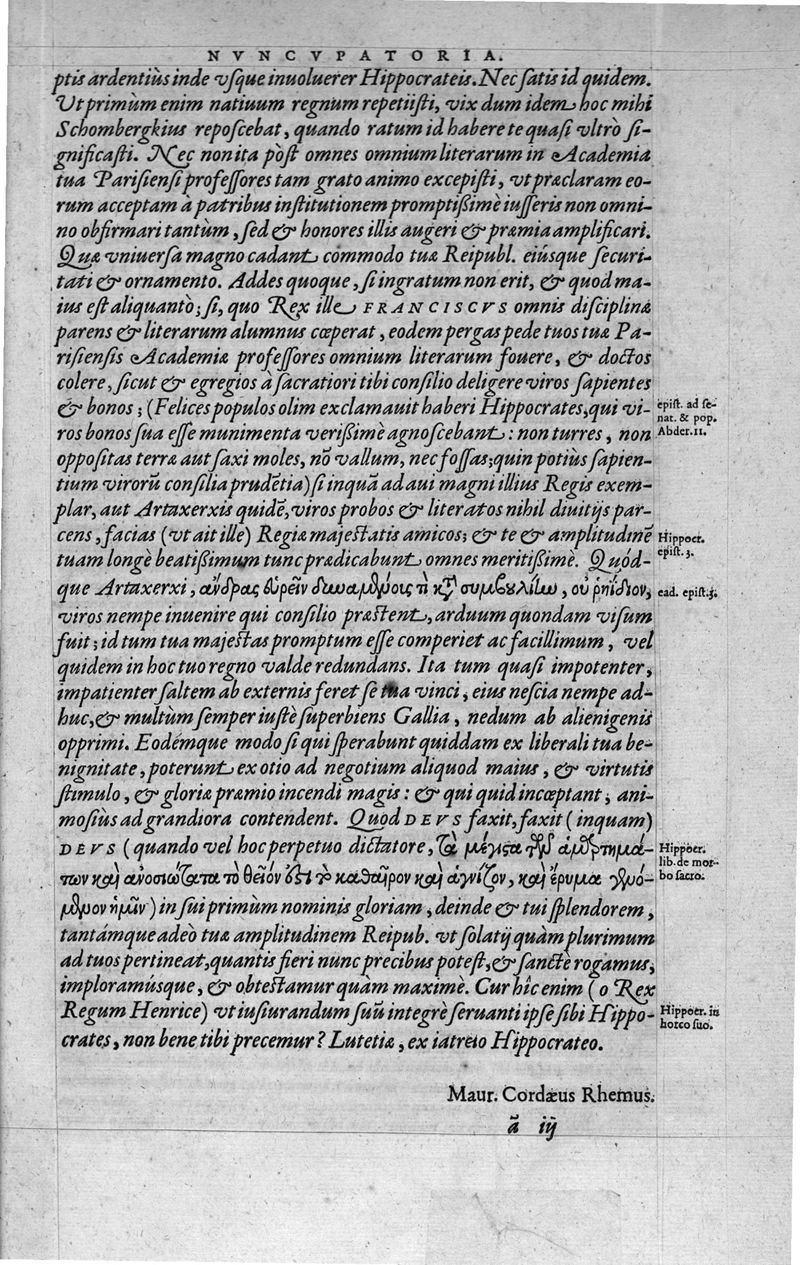 NVNCVPATORIA.
ptis ardentiùs inde vsque inuoluerer Hippocrateis. Nec satis id quidem.
Vt primùm enim natiuum regnum repetiisti, vix dum idem hoc mihi
Schombergkius reposcebat, quando ratum id habere te quasi vltrò si-
gnificasti. Nec non ita pòst omnes omnium literarum in Academia
tua Parisiensi professores tam grato animo excepisti, vt præclaram eo-
rum acceptam à patribus institutionem promptißimè iusseris non omni-
no obfirmari tantùm, sed & honores illis augeri & præmia amplificari.
Quæ vniuersa magno cadant commodo tuæ Reipubl. eiúsque securi-
tati & ornamento. Addes quoque, si ingratum non erit, & quod ma-
ius est aliquantò; si, quo Rex ille FRANCISCVS omnis disciplinæ
parens & literarum alumnus cœperat, eodem pergas pede tuos tuæ Pa-
risiensis Academiæ professores omnium literarum fouere, & doctos
colere, sicut & egregios à sacratiori tibi consilio deligere viros sapientes
& bonos; (Felices populos olim exclamauit haberi Hippocrates, qui vi-
epist. ad se-
nat. & pop.
Abder. 11.
ros bonos sua esse munimenta verißimè agnoscebant: non turres, non
oppositas terræ aut saxi moles, nō vallum, nec fossas; quin potiùs sapien-
tium virorū consilia prudētia) si inquā ad aui magni illius Regis exem-
plar, aut Artaxerxis quidē, viros probos & literatos nihil diuitijs par-
cens, facias (vt ait ille) Regiæ majestatis amicos; & te & amplitudinē
Hippocr.
epist. 3.
tuam longè beatißimum tunc prædicabunt omnes meritißimè. Quód-
que Artaxerxi, ἄνδρας εὑρεῖν δυναμένους τι κατὰ συμβουλίην, οὐ ῥηΐδιον,
ead. epist. 3.
viros nempe inuenire qui consilio præstent, arduum quondam visum
fuit; id tum tua majestas promptum esse comperiet ac facillimum, vel
quidem in hoc tuo regno valde redundans. Ita tum quasi impotenter,
impatienter saltem ab externis feret se tua vinci, eius nescia nempe ad-
huc, & multùm semper iustè superbiens Gallia, nedum ab alienigenis
opprimi. Eodémque modo si qui sperabunt quiddam ex liberali tua be-
nignitate, poterunt ex otio ad negotium aliquod maius, & virtutis
stimulo, & gloriæ præmio incendi magis: & qui quid incœptant, ani-
mosiùs ad grandiora contendent. Quod DEVS faxit, faxit (inquam)
DEVS (quando vel hoc perpetuo dictatore, τὰ μέγιστα τῶν ἁμαρτημά-
Hippocr.
lib. de mor-
bo sacro.
των καὶ ἀνοσιώτατα τὸ θεῖόν ἐστι τὸ καθαῖρον καὶ ἁγνίζον, καὶ ἔρυμα γινό-
μενον ἡμῖν) in sui primùm nominis gloriam, deinde & tui splendorem,
tantámque adeò tuæ amplitudinem Reipub. vt solatij quàm plurimum
ad tuos pertineat, quantis fieri nunc precibus potest, & sanctè rogamus,
imploramúsque, & obtestamur quàm maximè. Cur hîc enim (o Rex
Regum Henrice) vt iusiurandum suū integrè seruanti ipse sibi Hippo-
Hippocr. in
horco suo.
crates, non bene tibi precemur? Lutetiæ, ex iatreio Hippocrateo.
Maur. Cordæus Rhemus.
ā iij